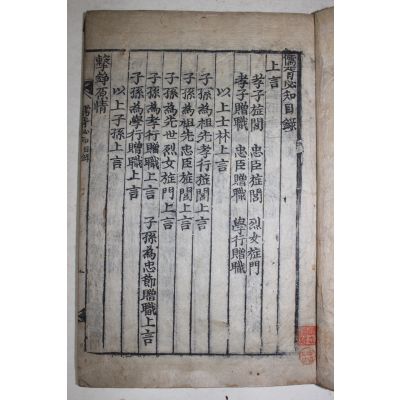 儒胥必知目錄
上言
孝子㫌閭　忠臣㫌閭　烈女㫌門
孝子贈職　忠臣贈職　學行贈職
以上士林上言
子孫爲祖先孝行㫌閭上言
子孫爲祖先忠臣㫌閭上言
子孫爲先世烈女㫌門上言
子孫爲孝行贈職上言　子孫爲忠節贈職上言
子孫爲學行贈職上言
以上子孫上言
擊錚原情
儒胥必知目錄